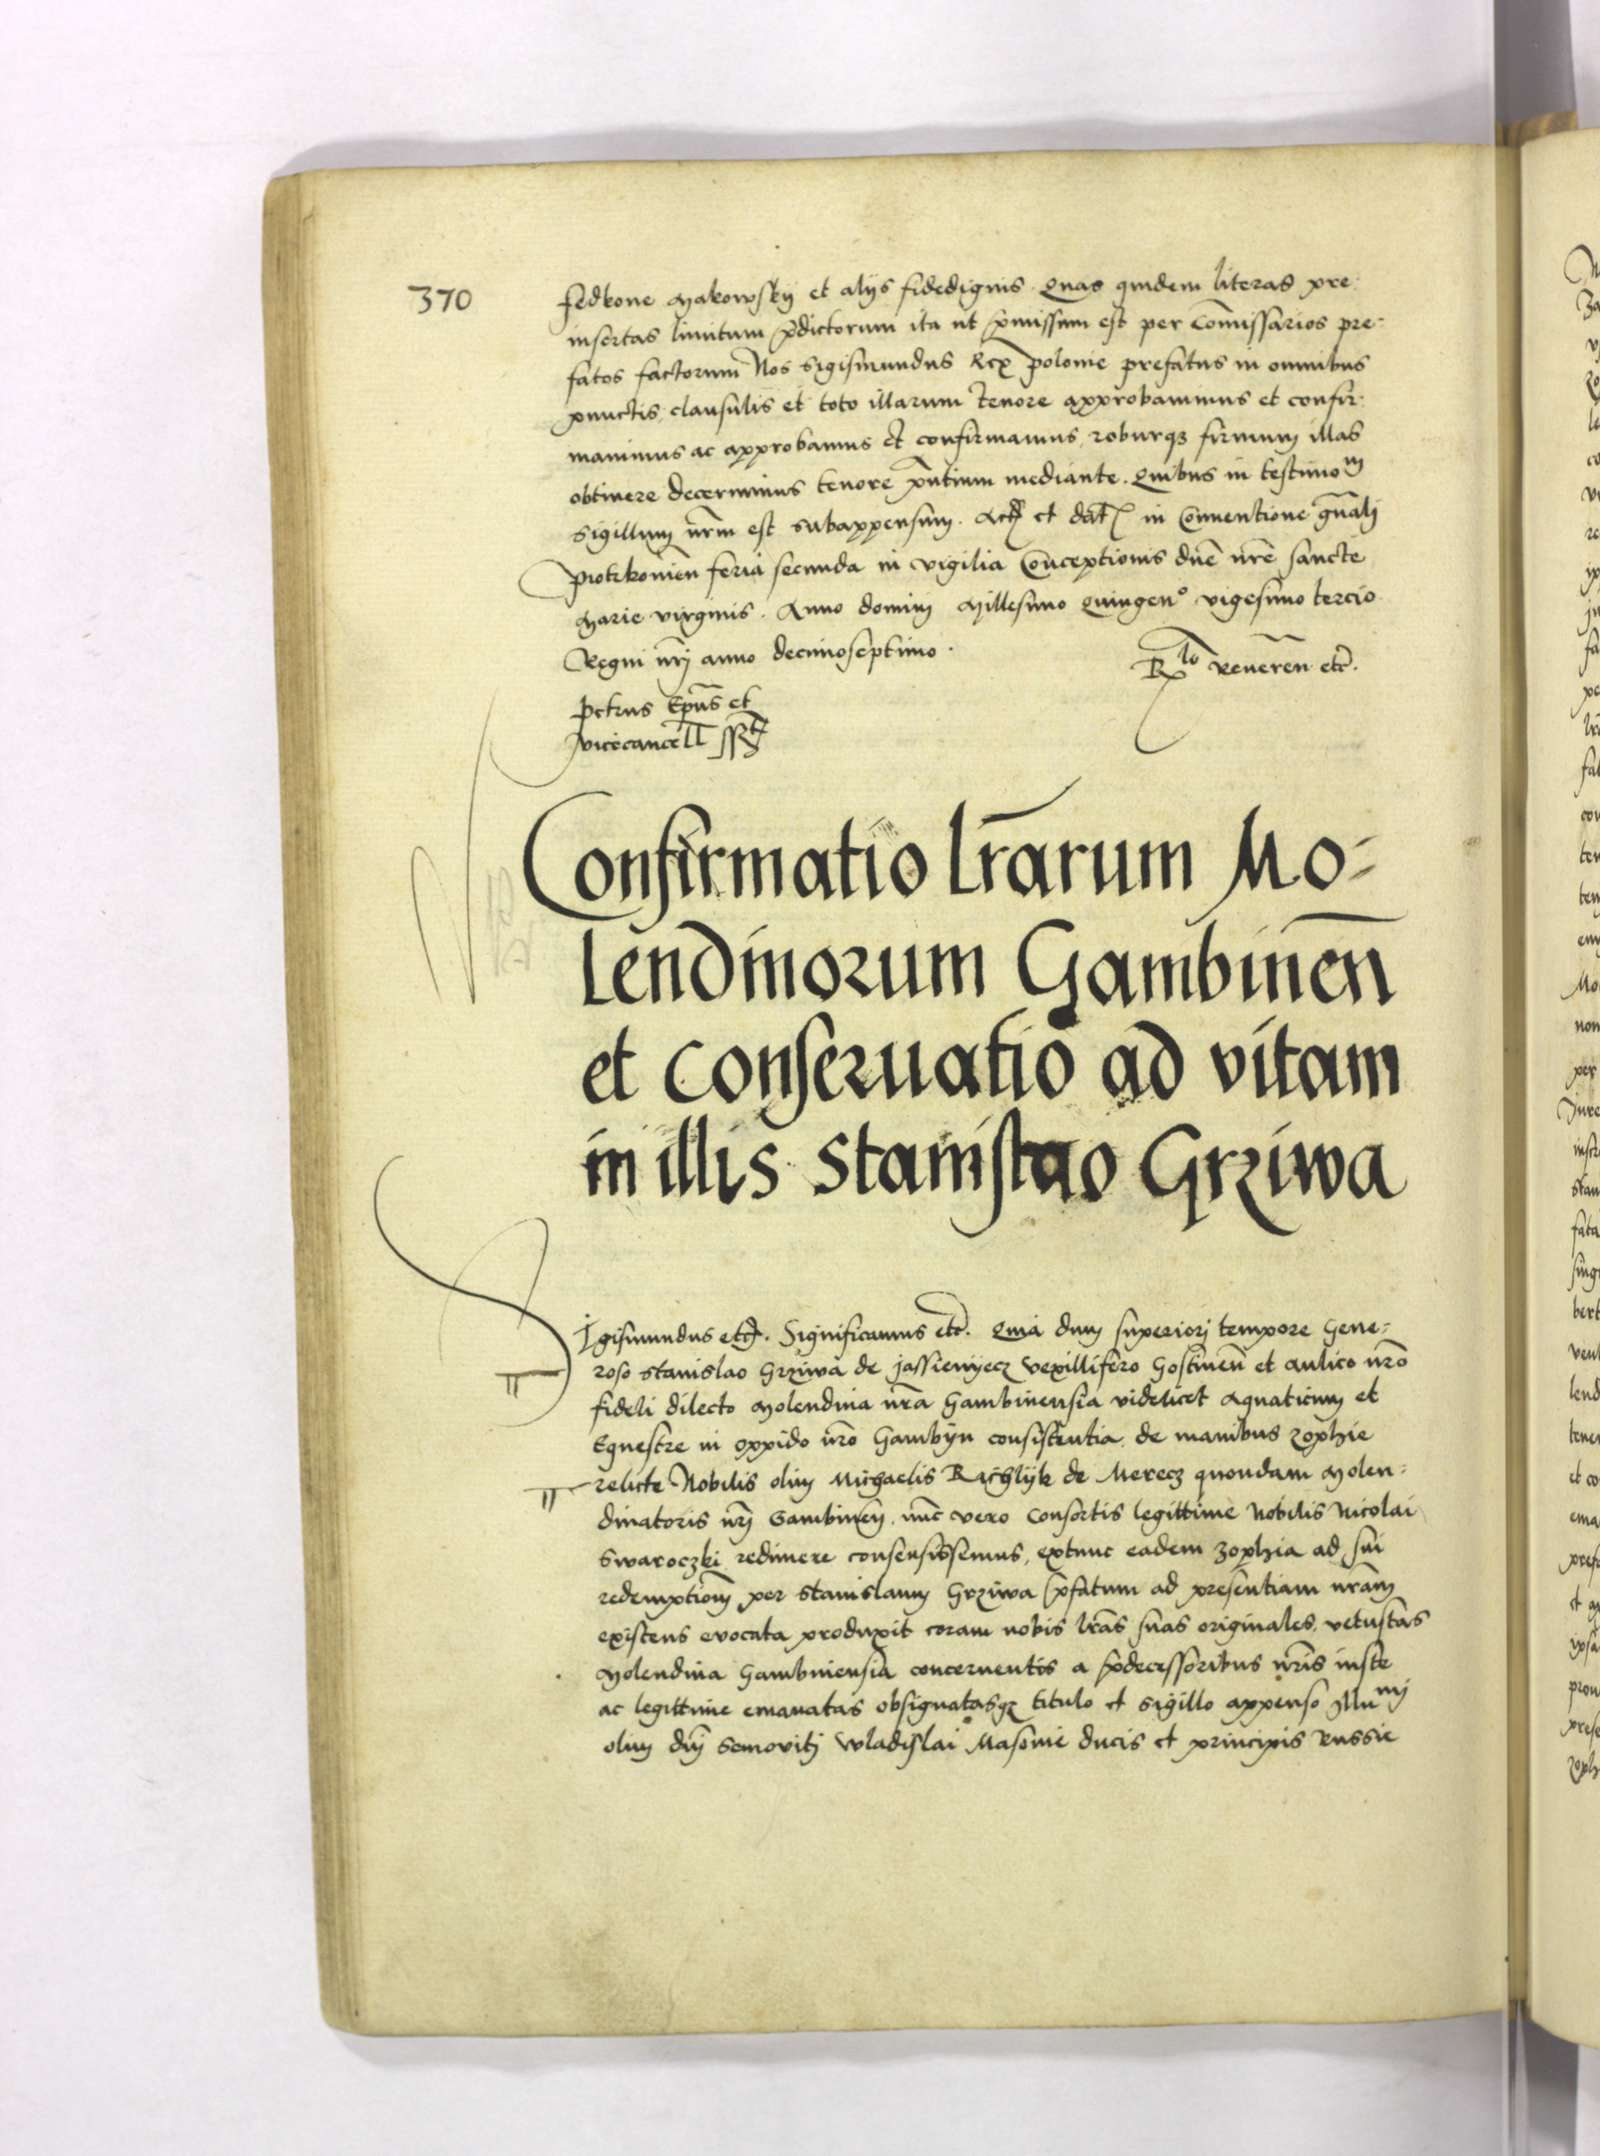 370
fedkone Makowsky et alijs fidedignis. Quas quidem literas pre-
insertas limitum p̄dictorum ita ut p̄missum est per Comissarios pre-
fatos factorum Nos Sigismundus Rex polonie prefatus in omnibus
punctis, clausulis et toto illarum tenore approbavimus et confir-
mavimus ac approbamus et confirmamus, roburq3 firmum illas
obtinere decernimus tenore p̄ntium mediante. Quibus in testimoᵐ
Sigillum nr̄m est subappensum. Act et dat in Conventione gn̄ali
Piotrkovien̄ feria secunda in vigilia Conceptionis dn̄e nr̄e sancte
Marie virginis. Anno domini Millesimo Quingenᵒ vigesimo tercio
Regni nr̄j anno decimoseptimo.
R^lo Reueren̄ etc̄.
Petrus Ep̄us et
vicecancell̄ sst
Confirmatio lr̄arum Mo-
lendinorum Gambinen̄
et conseruatio ad vitam
in illis stanislao Grziwa
SIgismundus etc. Significamus etc̄. Quia dum superiorj tempore Gene-
roso stanislao Grziwa de Jassienyecz vexillifero Gostinen̄ et aulico nr̄o
fideli dilecto Molendina nr̄a Gambinensia videlicet Aquaticum et
Equestre in oppido nr̄o Gambyn consistentia de manibus zophie
relicte Nobilis olim Michaelis Richlyk de Merecz quondam Molen-
dinatoris nr̄j Gambinen̄. nūc vero consortis legittime Nobilis Nicolai
Swaroczki redimere consensissemus, extunc eadem Zophia ad sui
redemptionē per stanislaum Grziwa p̄fatum ad presentiam nr̄am
existens evocata produxit coram nobis lr̄as suas originales, vetustas
Molendina Gambinensia concernentes a p̄decessoribus nr̄is iuste
ac legittime emanatas obsignatasq3 titulo et sigillo appenso Illuᵐⁱ
olim dn̄j Semovitj Wladislai Masovie ducis et principis Russie